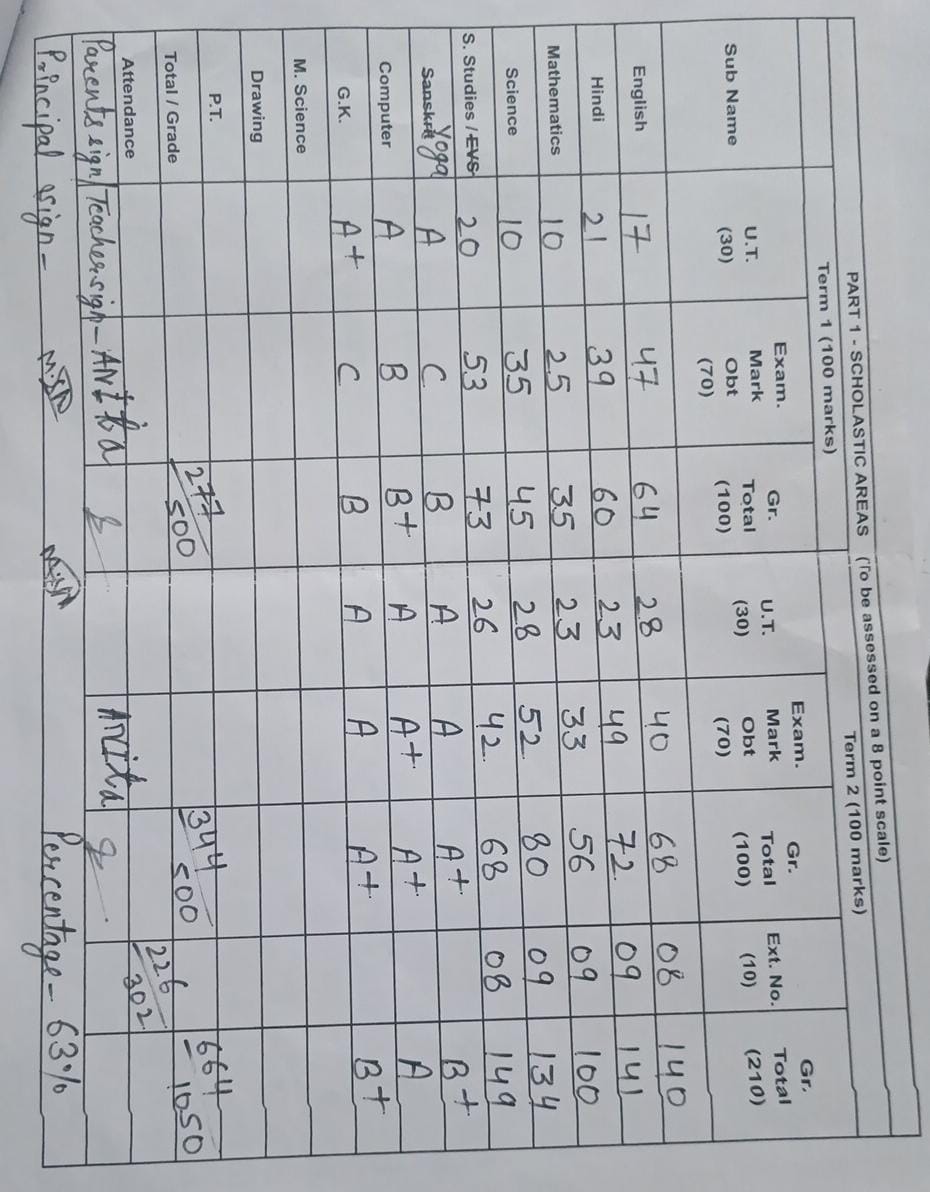 PART 1 - SCHOLASTIC AREAS (To be assessed on a 8 point scale)
Term 1 (100 marks) Term 2 (100 marks)
Sub Name U.T. (30) Exam. Mark Obt (70) Gr. Total (100) U.T. (30) Exam. Mark Obt (70) Gr. Total (100) Ext. No. (10) Gr. Total (210)
English 17 47 64 28 40 68 08 140
Hindi 21 39 60 23 49 72 09 141
Mathematics 10 25 35 23 33 56 09 100
Science 10 35 45 28 52 80 09 134
S. Studies / EVS 20 53 73 26 42 68 08 149
Sanskrit Yoga A C B A A A+ B+
Computer A B B+ A A+ A+ A
G.K. A+ C B A A A+ B+
M. Science
Drawing
P.T.
Total / Grade 277/500 344/500 664/1050
Attendance 226/302
Parents sign/Teacher sign- ANita Anita
Principal sign- Percentage- 63%